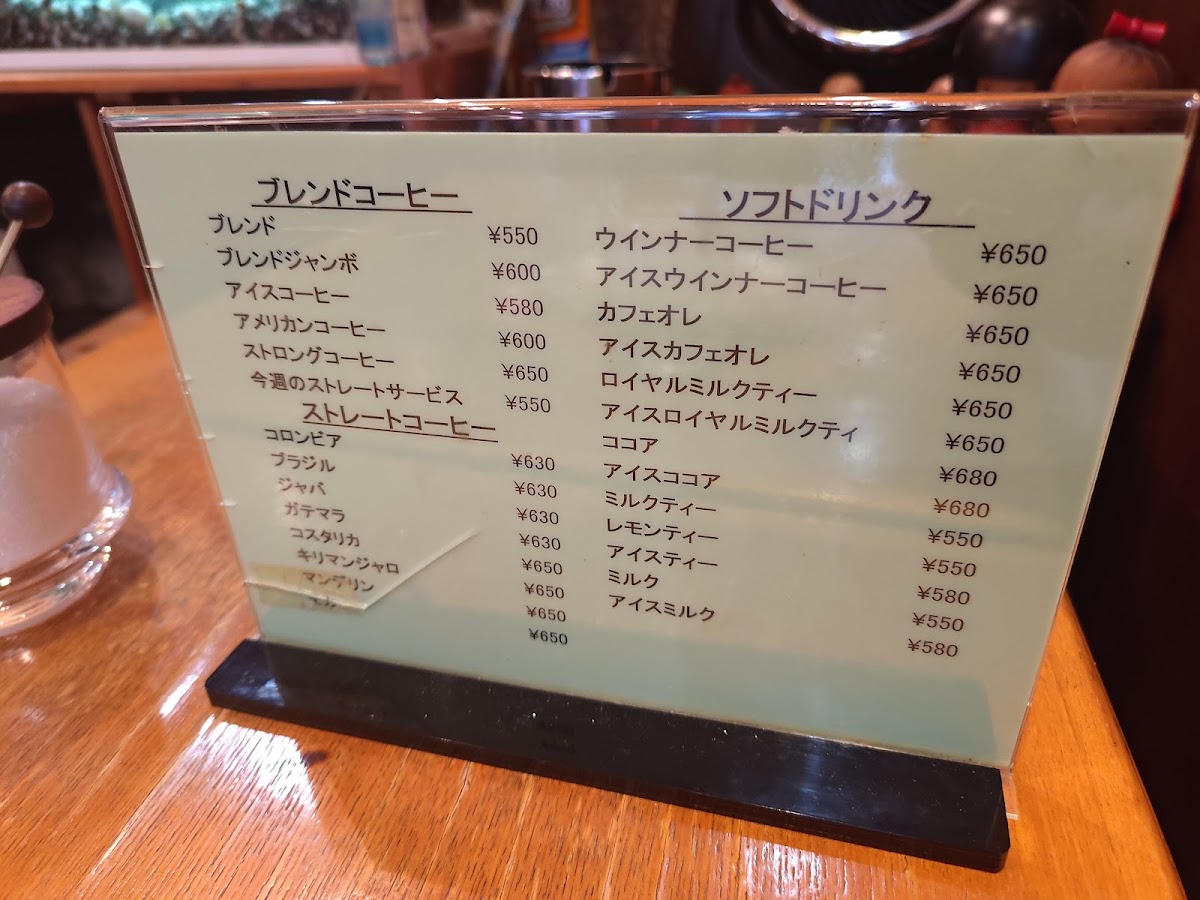 ブレンドコーヒー
ブレンド ¥550
ブレンドジャンボ ¥600
アイスコーヒー ¥580
アメリカンコーヒー ¥600
ストロングコーヒー ¥650
今週のストレートサービス ¥550
ストレートコーヒー
コロンビア ¥630
ブラジル ¥630
ジャバ ¥630
ガテマラ ¥630
コスタリカ ¥650
キリマンジャロ ¥650
マンデリン ¥650
¥650
ソフトドリンク
ウインナーコーヒー ¥650
アイスウインナーコーヒー ¥650
カフェオレ ¥650
アイスカフェオレ ¥650
ロイヤルミルクティー ¥650
アイスロイヤルミルクティ ¥650
ココア ¥680
アイスココア ¥680
ミルクティー ¥550
レモンティー ¥550
アイスティー ¥580
ミルク ¥550
アイスミルク ¥580